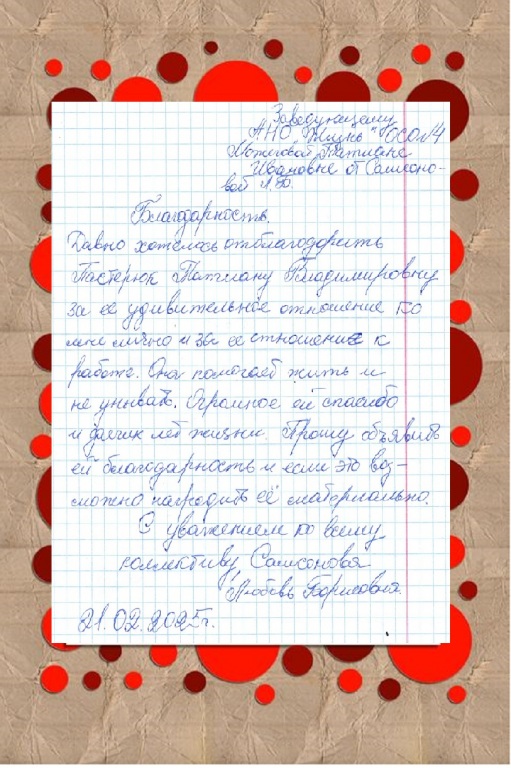 Заведующему
АНО "Жизнь" ОСО №4
Мотиговой Татьяне
Ивановне от Самсоно-
вой Л.Б.
Благодарность.
Давно хотелось отблагодорить
Пастернюк Татиану Владимировну
за её удивительное отношение ко
мне лично и за ее отношение к
работе. Она помогает жить и
не унывать. Огромное ей спасибо
и долгих лет жизни. Прошу объявить
ей благодарность и если это воз-
можно наградить её материально.
С уважением ко всему
коллективу Самсонова
Любовь Борисовна.
21.02.2025г.